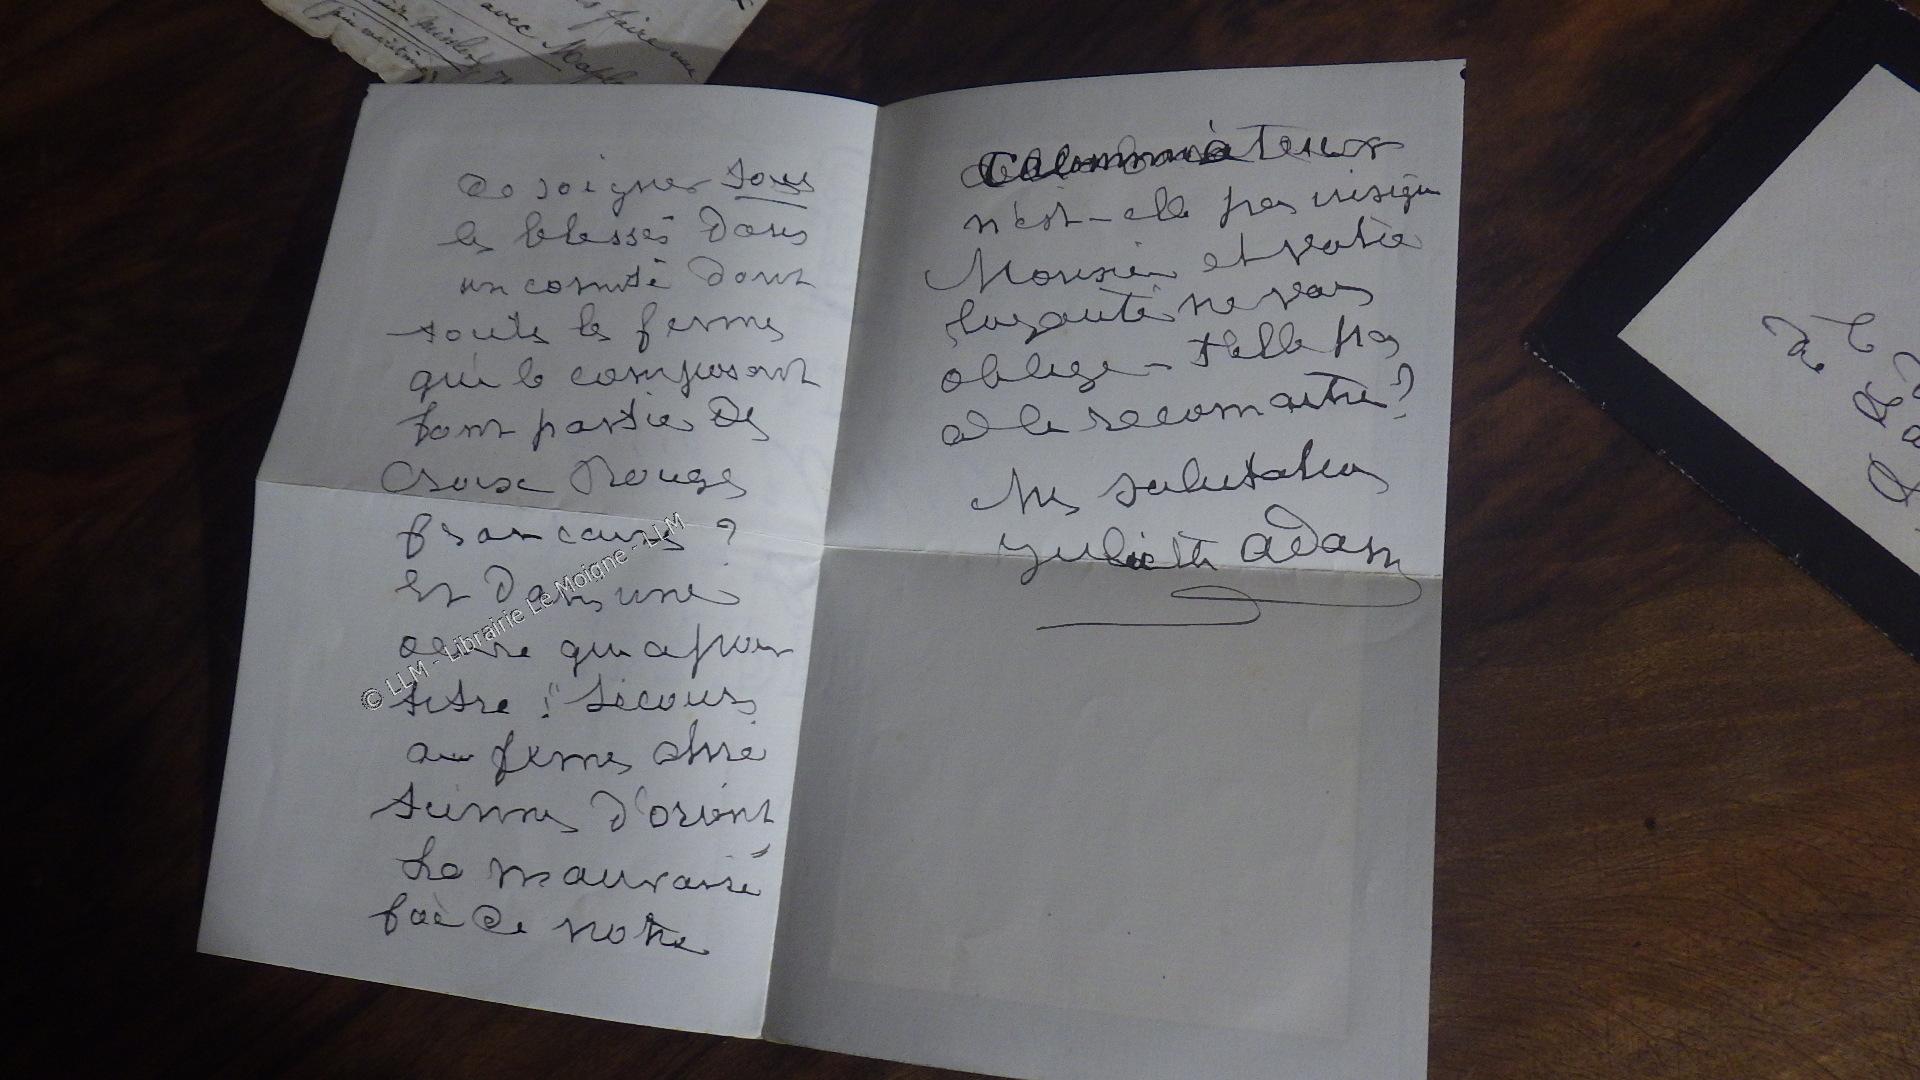 avec Naples
de soigner tous
les blessés dans
un comité dont
toute les femmes
qui le composent
font partie des
Croix Rouges
francaises ?
Et dans une
œuvre qui a pour
titre : "Secours
au femmes chré
tiennes d'orient
La mauvaise
foi de notre
Calomniateur
n'est-elle pas insigne
Monsieur et votre
loyauté ne vous
oblige-t-elle pas
à le reconnaitre ?
Mes salutations
Juliette Adam
© LLM - Librairie Le Moigne - LLM